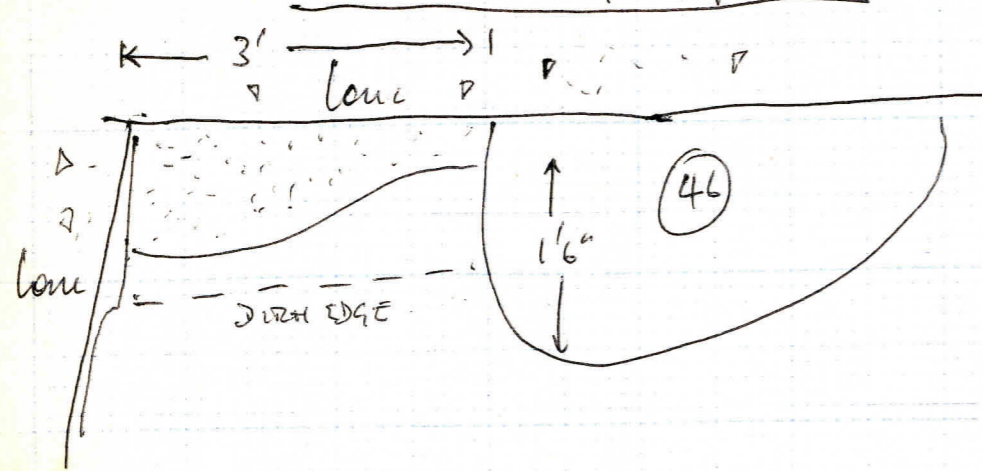 3'
Conc
46
1'6"
Conc
DITCH EDGE